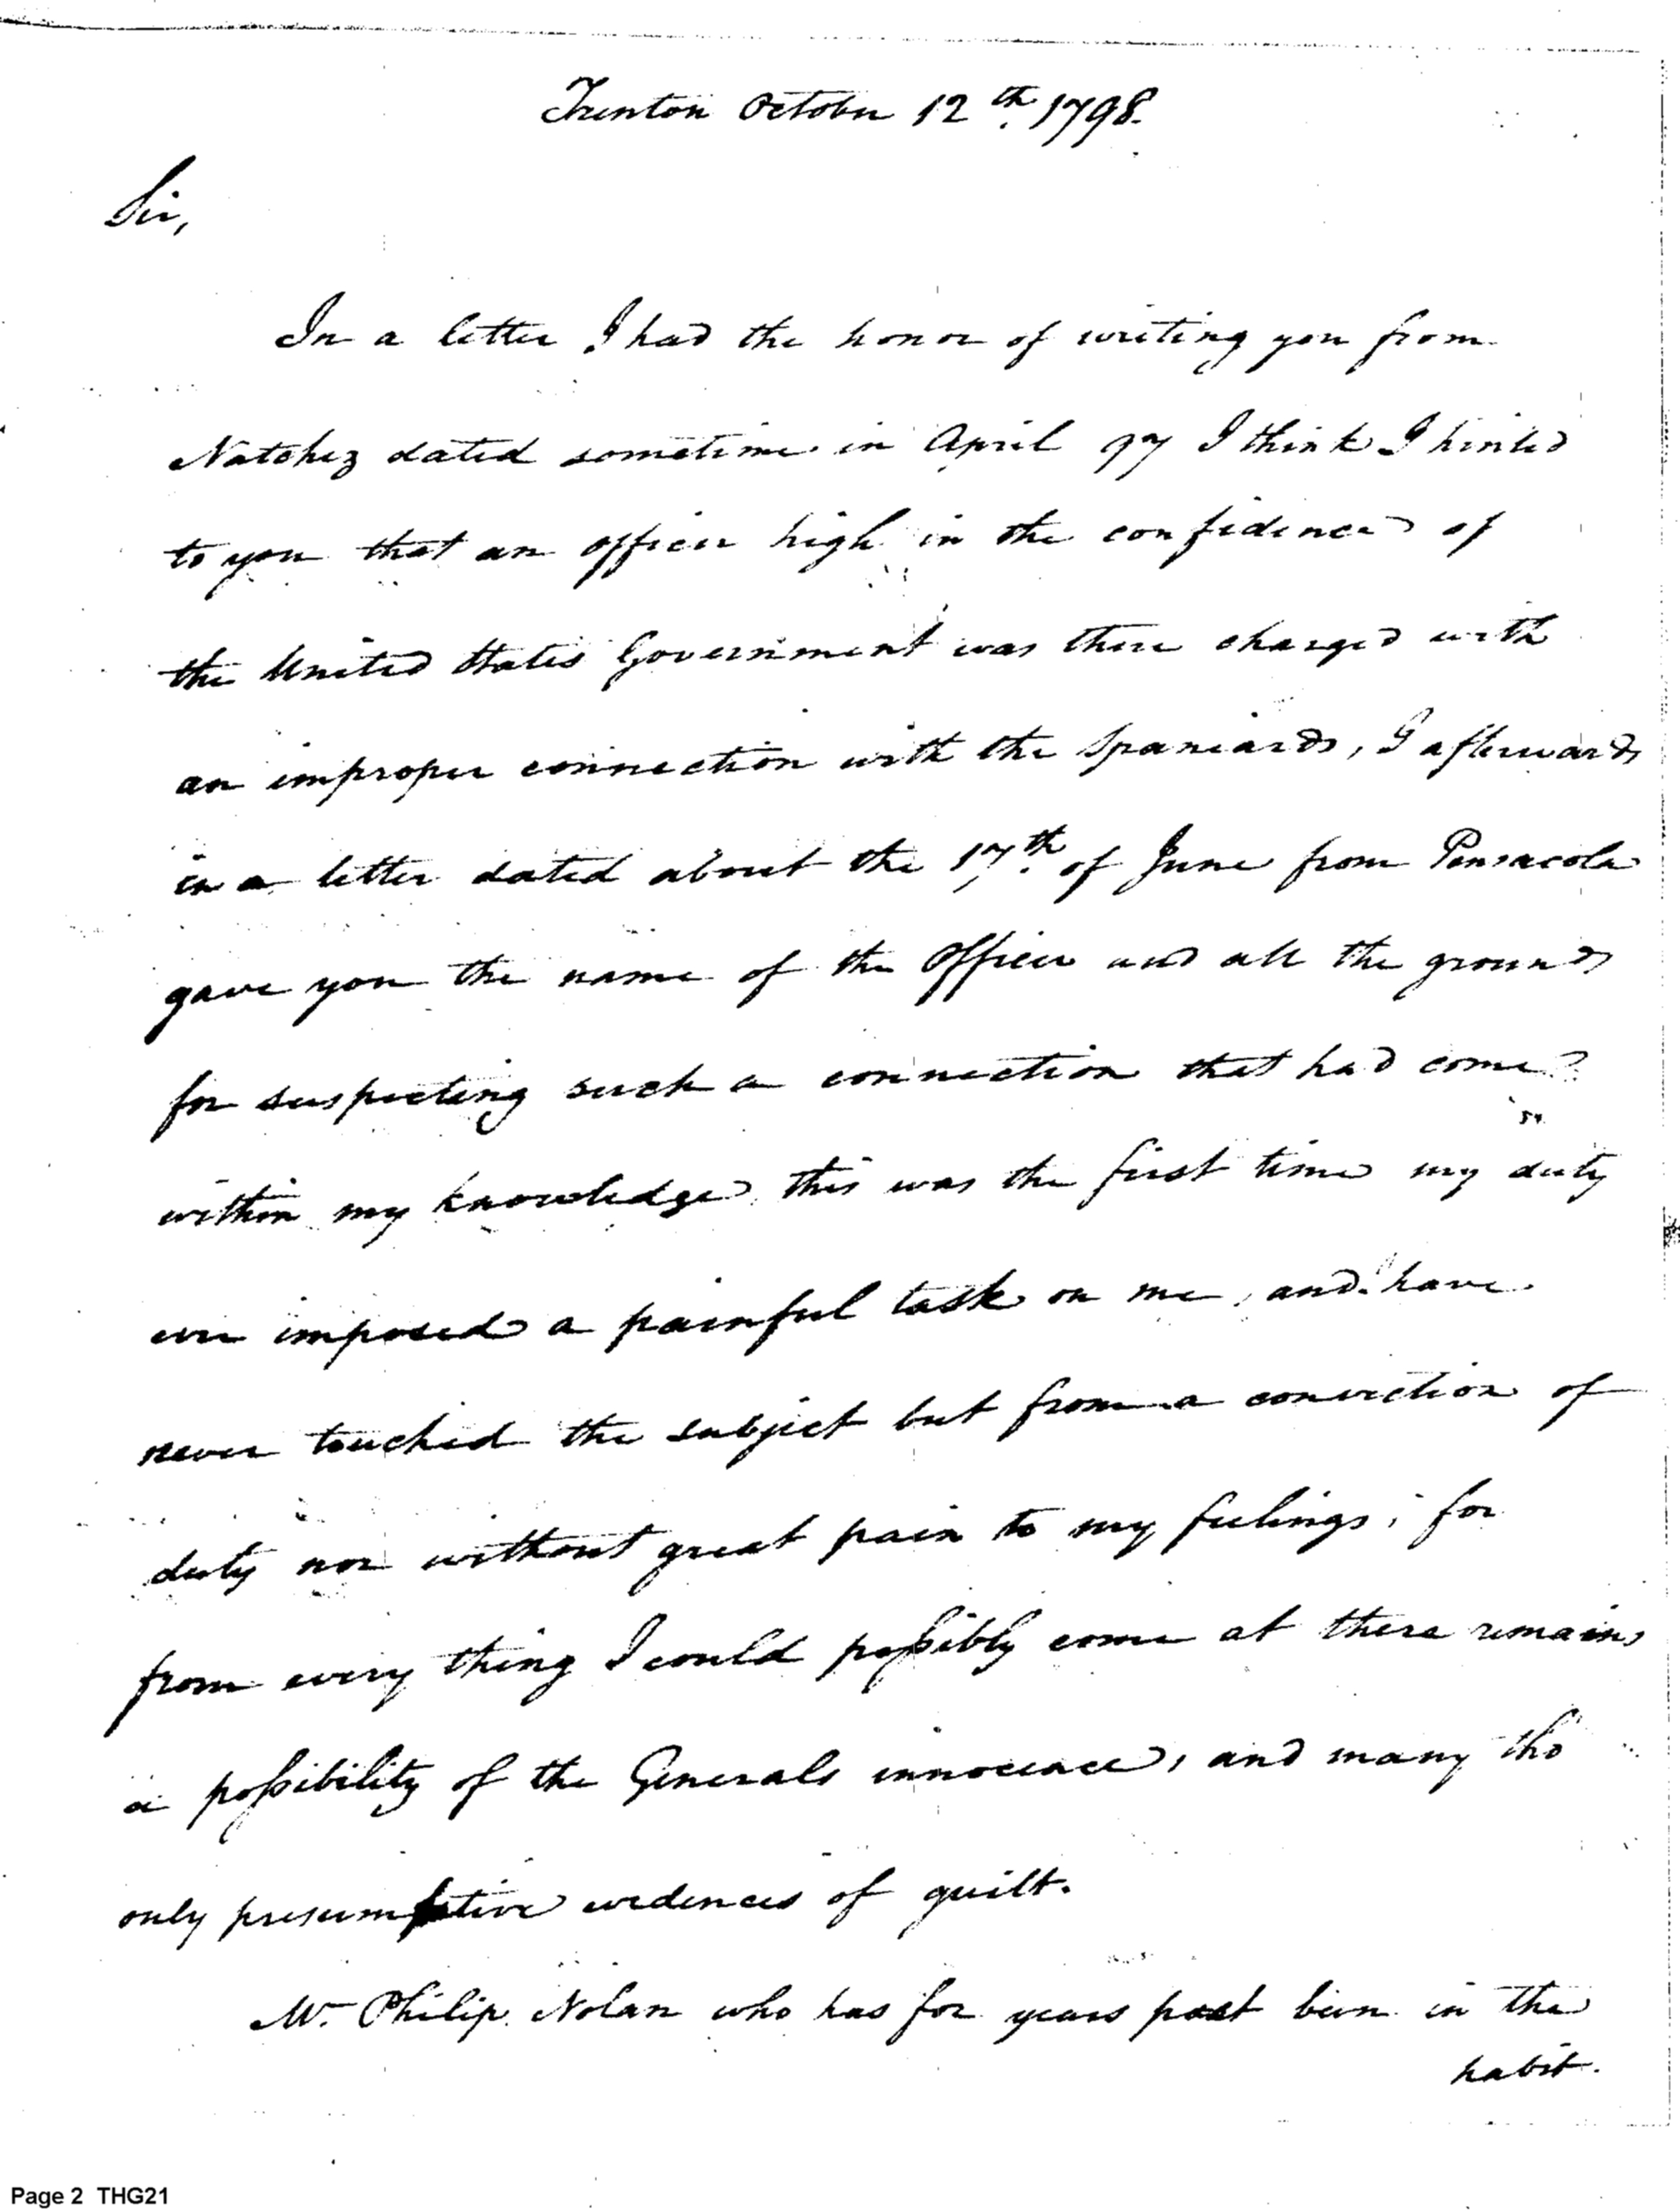 Trenton October 12th. 1798.
Sir,
In a letter I had the honor of writing you from
Natchez dated sometime in April 97 I think I hinted
to you that an officer high in the confidence of
the United States Government was there charged with
an improper connection with the Spaniards, I afterwards
in a letter dated about the 17th. of June from Pensacola
gave you the name of the Officer and all the grounds
for suspecting such a connection that had come
within my knowledge this was the first time my duty
ever imposed a painful task on me, and have
never touched the subject but from a conviction of
duty nor without great pain to my feelings; for
from every thing I could possibly come at there remains
a possibility of the Generals innocence, and many tho
only presumptive evidences of guilt.
Mr. Philip Nolan who has for years past been in the
habit.
Page 2 THG21